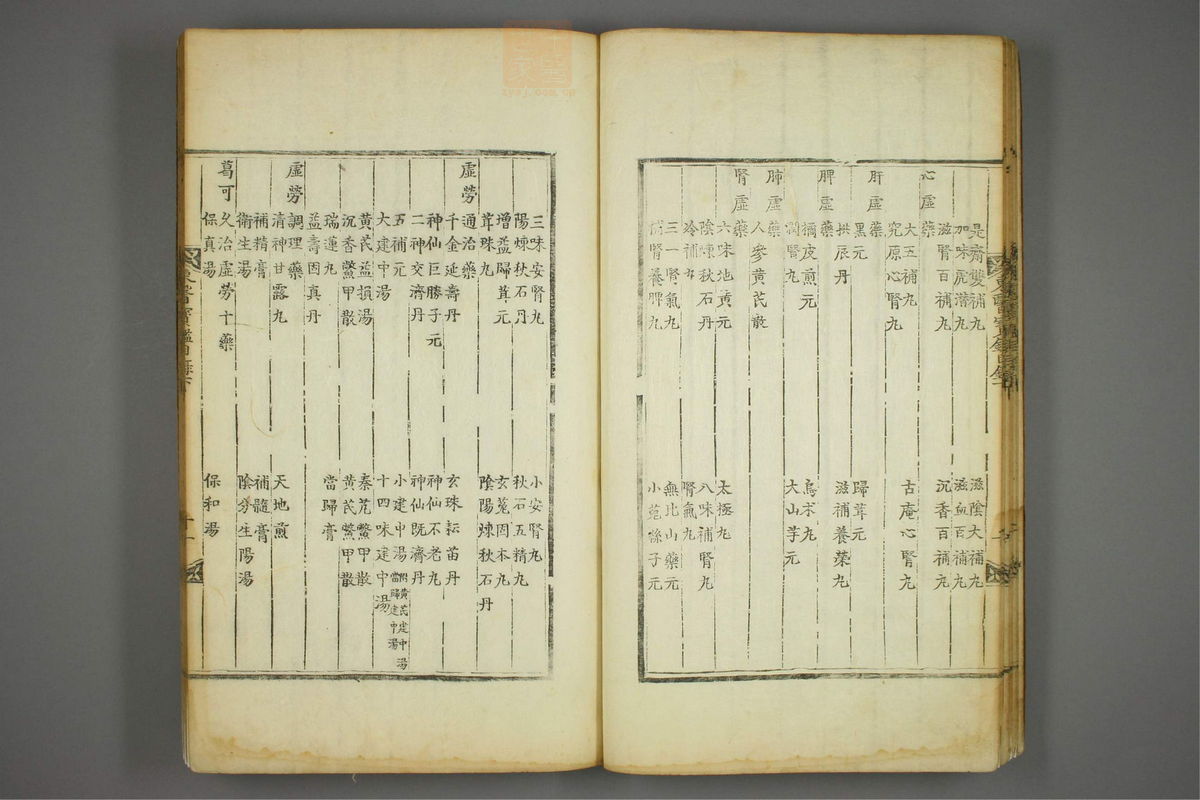 是齋雙補丸 滋陰大補丸
加味虎潛丸 滋血百補丸
滋腎百補丸 沉香百補丸
心虛藥
大五補丸 古庵心腎丸
究原心腎丸
肝虛藥
黑元 歸茸元
拱辰丹 滋補養榮丸
脾虛藥
橘皮煎元 烏朮丸
潤腎丸 大山芋元
肺虛藥
人參黃芪散
腎虛藥
六味地黃元 太極丸
陰煉秋石丹 八味補腎丸
冷補丸 腎氣丸
三一腎氣丸 無比山藥元
補腎養脾丸 小菟絲子元
三味安腎丸 小安腎丸
陽煉秋石丹 秋石五精丸
增益歸茸元 玄菟固本丸
茸珠丸 陰陽煉秋石丹
虛勞通治藥
千金延壽丹 玄珠耘苗丹
神仙巨勝子元 神仙不老丸
二神交濟丹 神仙既濟丹
五補元 小建中湯 附黃芪建中湯 當歸建中湯
大建中湯 十四味建中湯
黃芪益損湯 秦艽鱉甲散
沉香鱉甲散 黃芪鱉甲散
瑞蓮丸 當歸膏
益壽固真丹
虛勞調理藥
清神甘露丸 天地煎
補精膏 補髓膏
衛生湯 陰分生陽湯
葛可久治虛勞十藥
保真湯 保和湯
東醫寶鑑目錄下